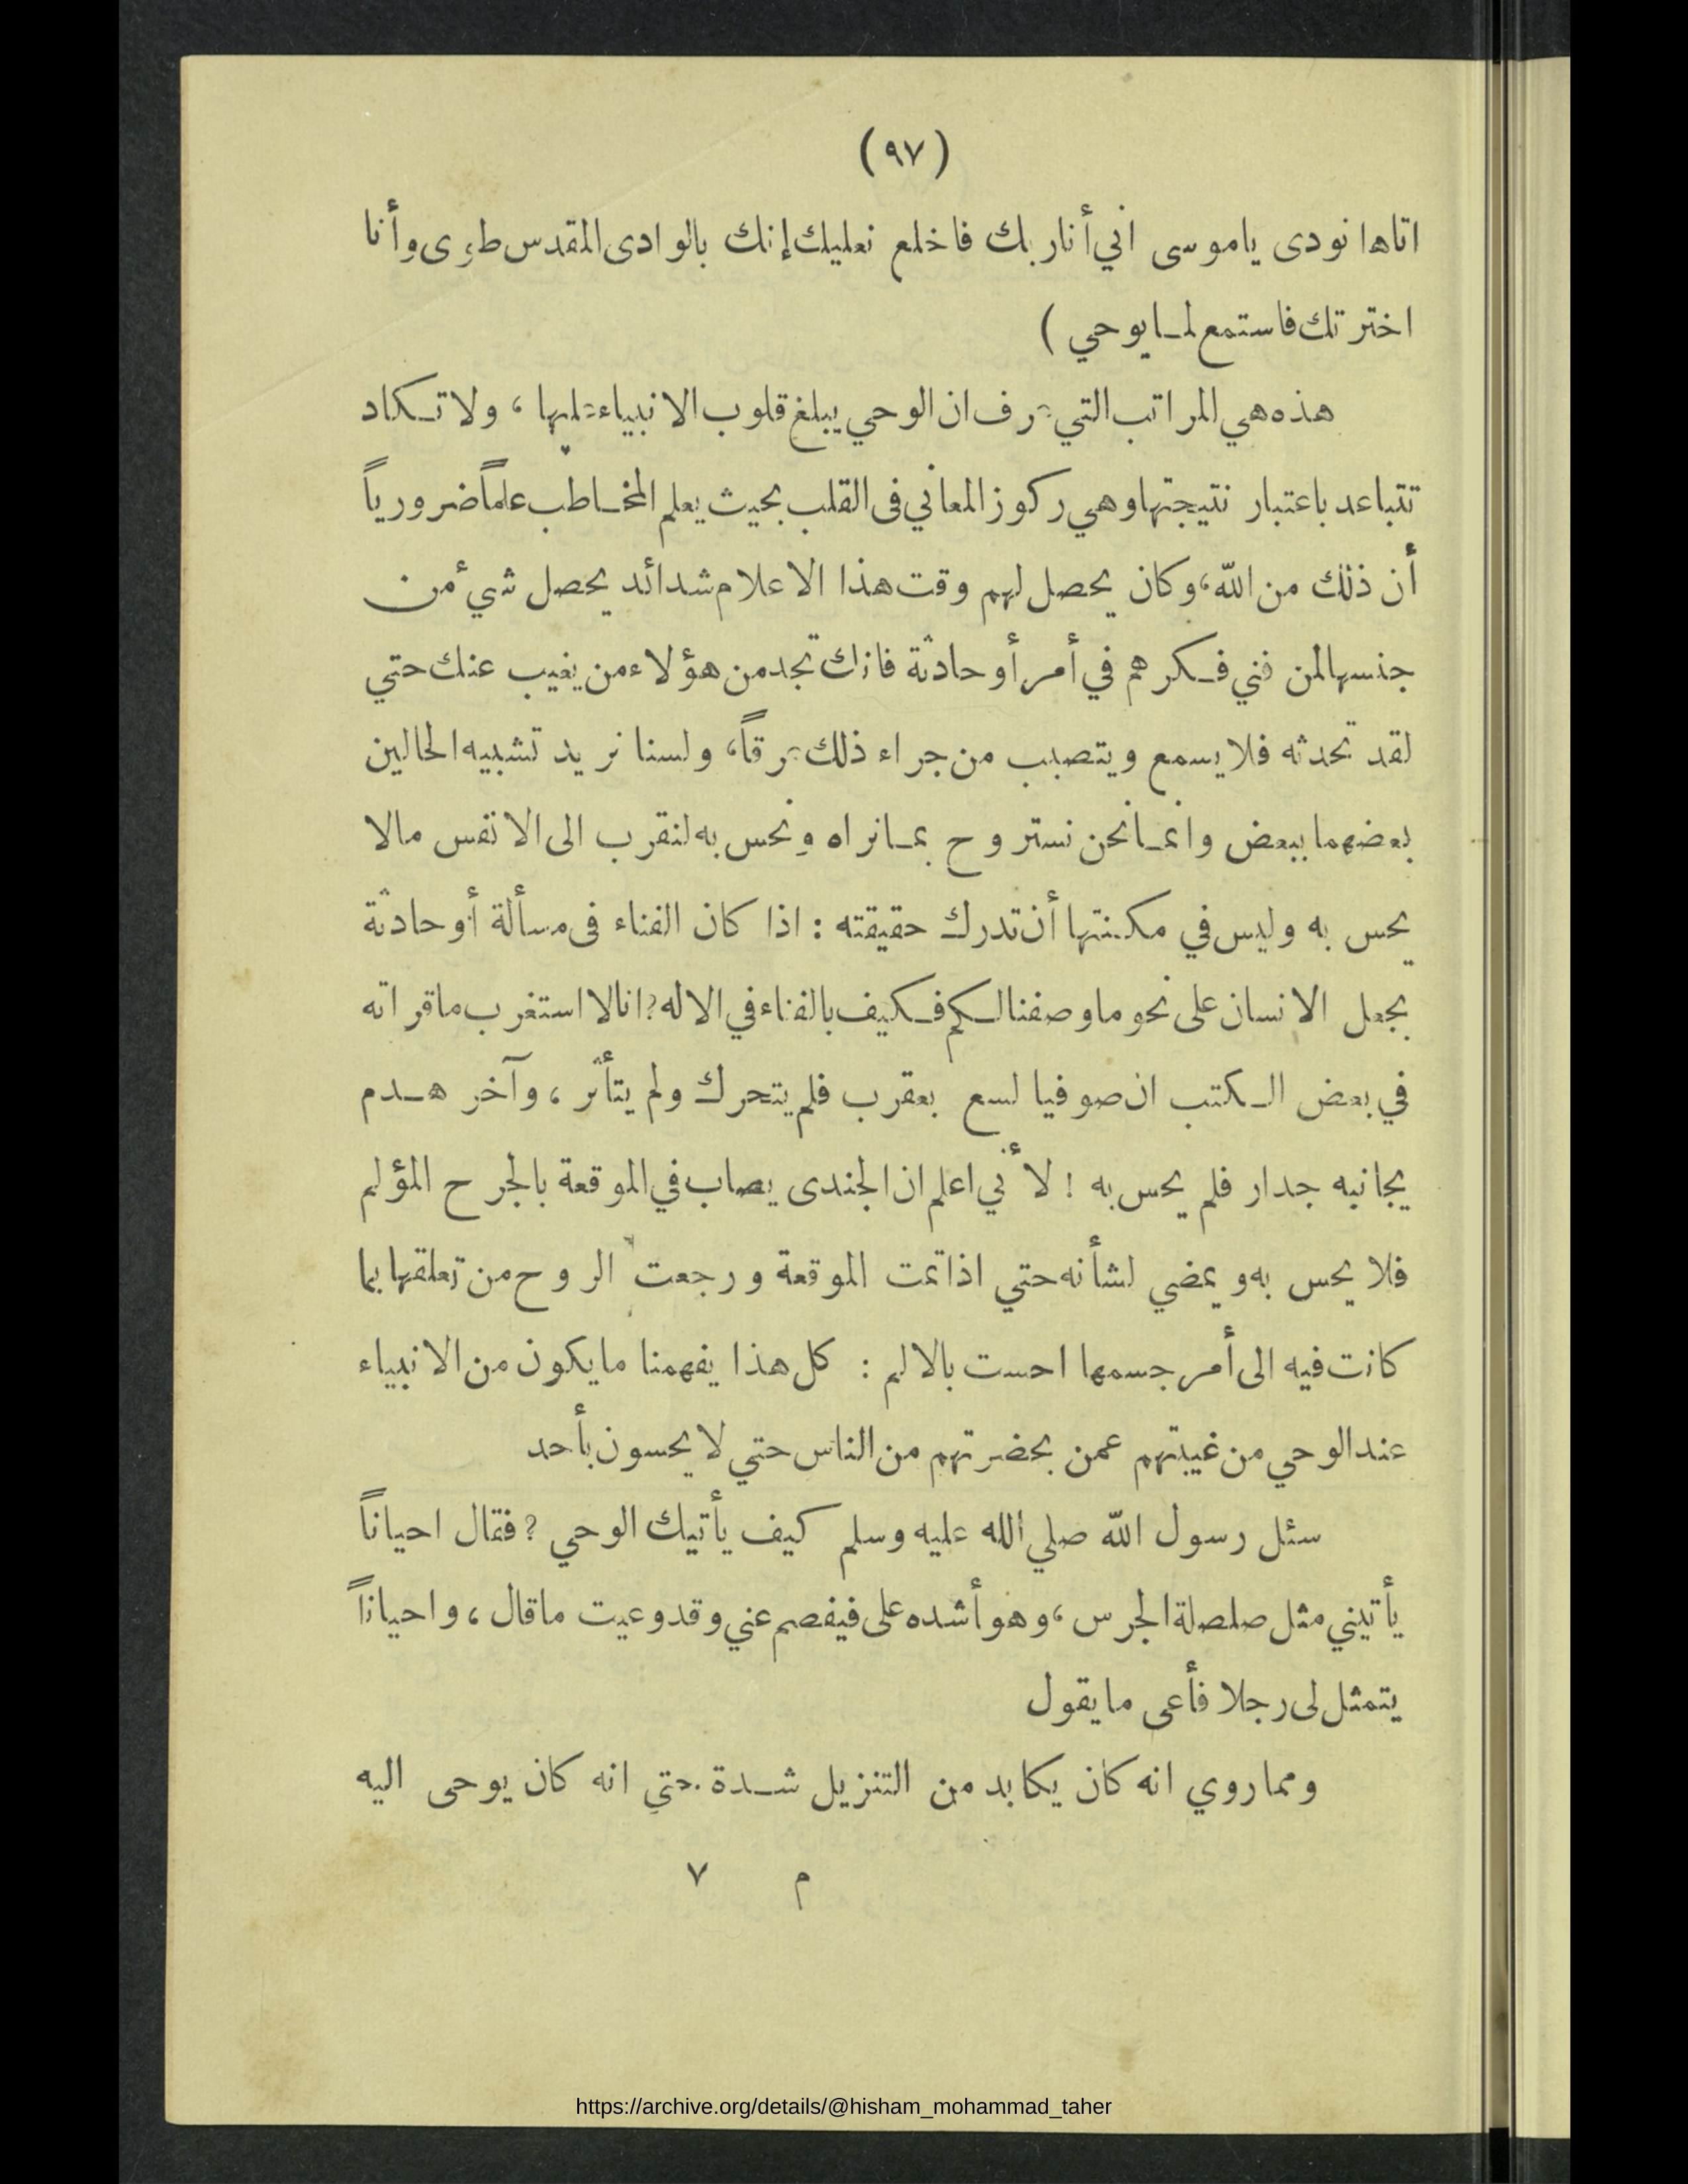 (٩٧)
اتاها نودى ياموسى اني أنا ربك فاخلع نعليك إنك بالوادى المقدس طوى وأنا
اخترتك فاستمع لما يوحي )
هذه هي المراتب التي عرف ان الوحي يبلغ قلوب الانبياء عليها ، ولا تكاد
تتباعد باعتبار نتيجتها وهي ركوز المعاني فى القلب بحيث يعلم المخاطب علماً ضرورياً
أن ذلك من الله ، وكان يحصل لهم وقت هذا الاعلام شدائد يحصل شيء من
جنسها لمن فني فكرهم في أمر أو حادثة فانك تجد من هؤلاء من يغيب عنك حتي
لقد تحدثه فلا يسمع ويتصبب من جراء ذلك عرقاً ، ولسنا نريد تشبيه الحالين
بعضهما ببعض وانما نحن نستروح بما نراه ونحس به لنقرب الى الانفس مالا
يحس به وليس في مكنتها أن تدرك حقيقته : اذا كان الفناء فى مسألة أو حادثة
يجعل الانسان على نحو ما وصفنا لكم فكيف بالفناء في الاله ? انا لا استغرب ما قراته
في بعض الكتب ان صوفيا لسع بعقرب فلم يتحرك ولم يتأثر ، وآخر هدم
يجانبه جدار فلم يحس به ! لأني اعلم ان الجندى يصاب في الموقعة بالجرح المؤلم
فلا يحس به ويمضي لشأنه حتي اذا تمت الموقعة ورجعت الروح من تعلقها بما
كانت فيه الى أمر جسمها احست بالالم : كل هذا يفهمنا ما يكون من الانبياء
عند الوحي من غيبتهم عمن بحضرتهم من الناس حتي لا يحسون بأحد
سئل رسول الله صلي الله عليه وسلم كيف يأتيك الوحي ? فقال احياناً
يأتيني مثل صلصلة الجرس ، وهو أشده على فيفصم عني وقد وعيت ما قال ، واحياناً
يتمثل لى رجلا فأعى ما يقول
ومما روي انه كان يكابد من التنزيل شدة حتي انه كان يوحى اليه
م ٧
https://archive.org/details/@hisham_mohammad_taher